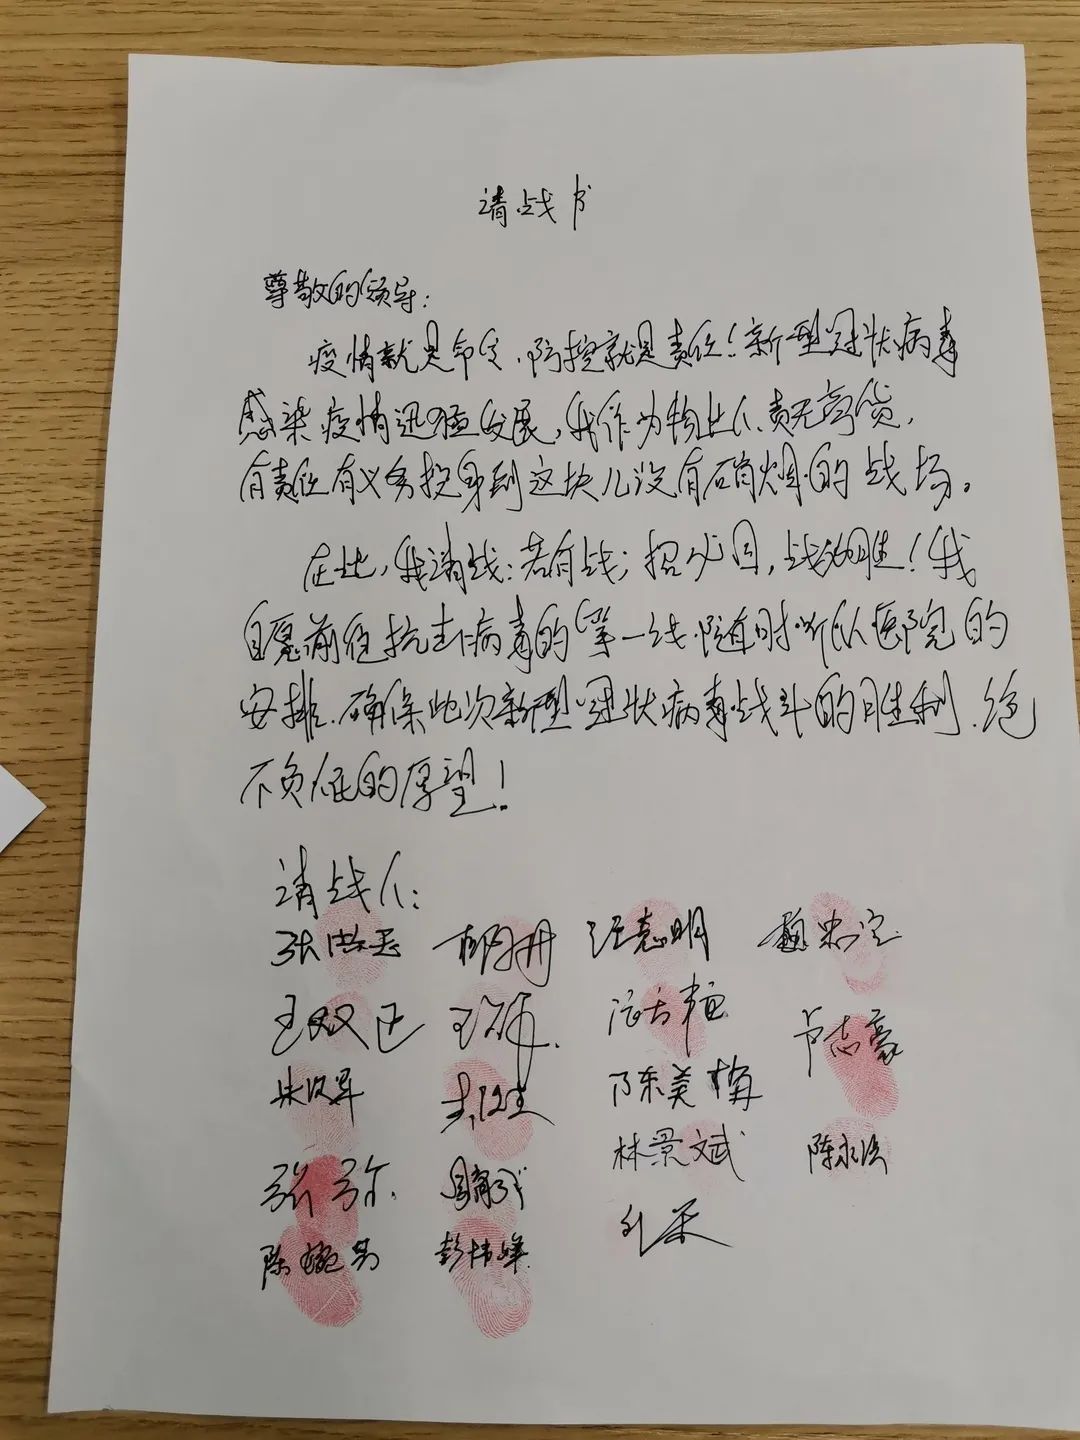 请战书
尊敬的领导：
疫情就是命令，防控就是责任！新型冠状病毒
感染疫情迅猛发展，我作为物业人、责无旁贷，
有责任有义务投身到这块儿没有硝烟的战场。
在此，我请战：若有战；招必回，战必胜！我
自愿前往抗击病毒的第一线.随时听从医院的
安排.确保此次新型冠状病毒战斗的胜利.绝
不负
的厚望！
请战人：
汪志明
卢志豪
陈美梅
林景斌
陈永法
彭